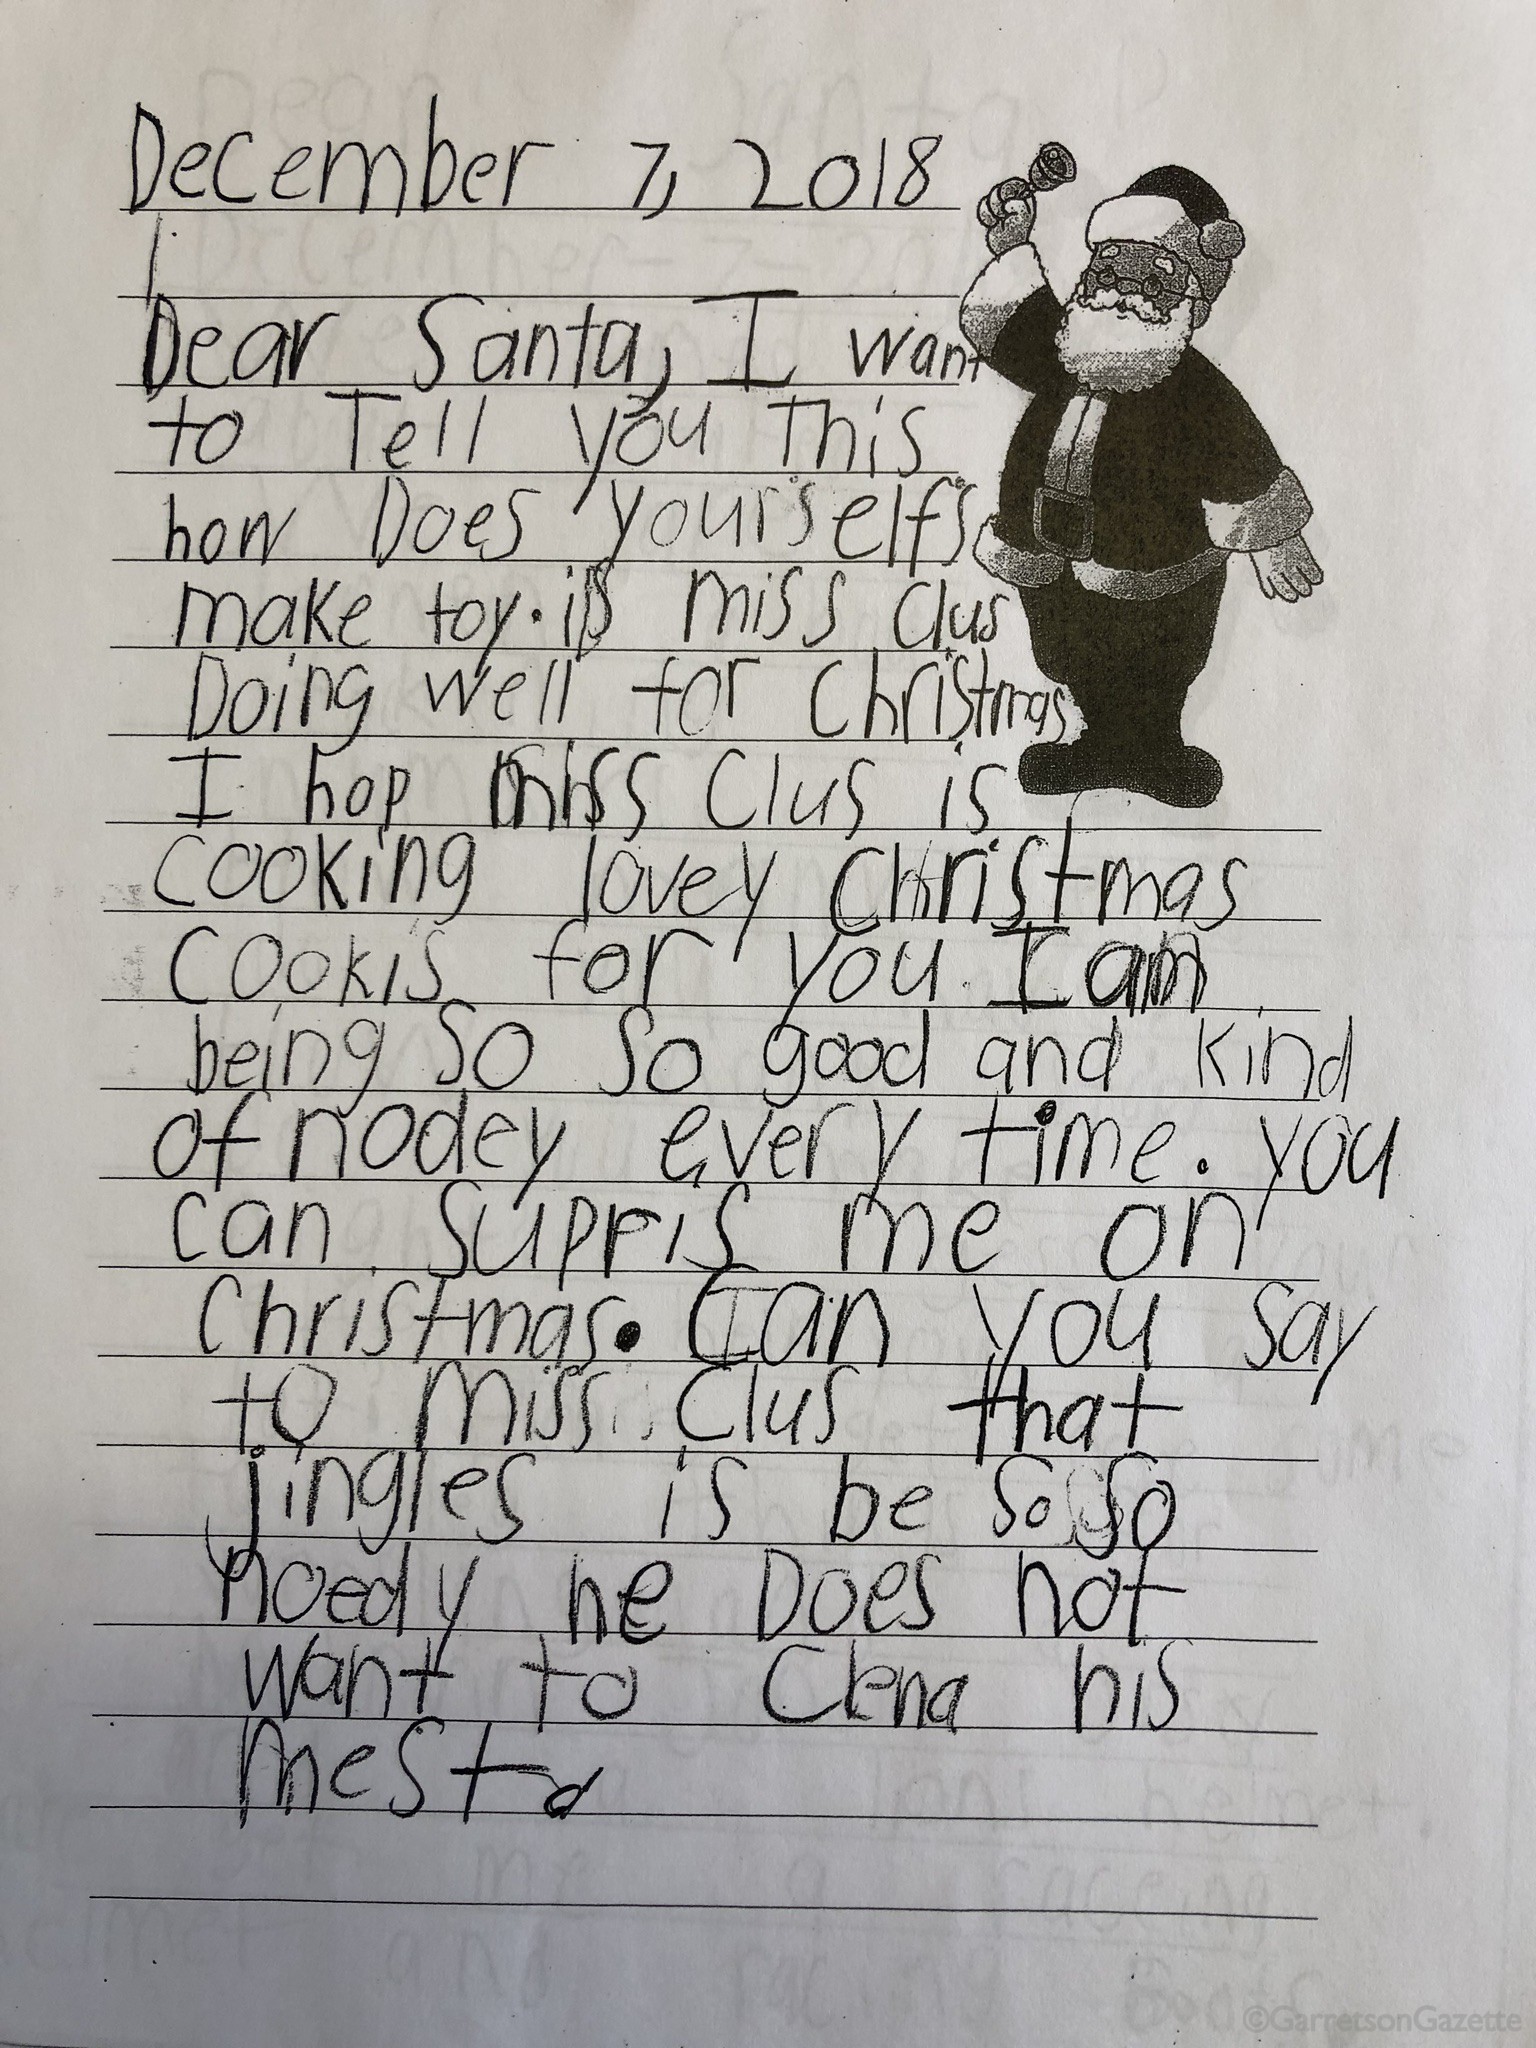 December 7, 2018
Dear Santa, I want
to Tell you This
how Does yourselfs
make toy. is miss Clus
Doing well for Christmas
I hop miss Clus is
cooking lovey Christmas
Cookis for you. I am
being So So good and kind
of nodey every time. you
can suppris me on
Christmas. Can you say
to miss Clus that
jingles is be so so
noedy he Does not
want to Clena his
mest
©GarretsonGazette